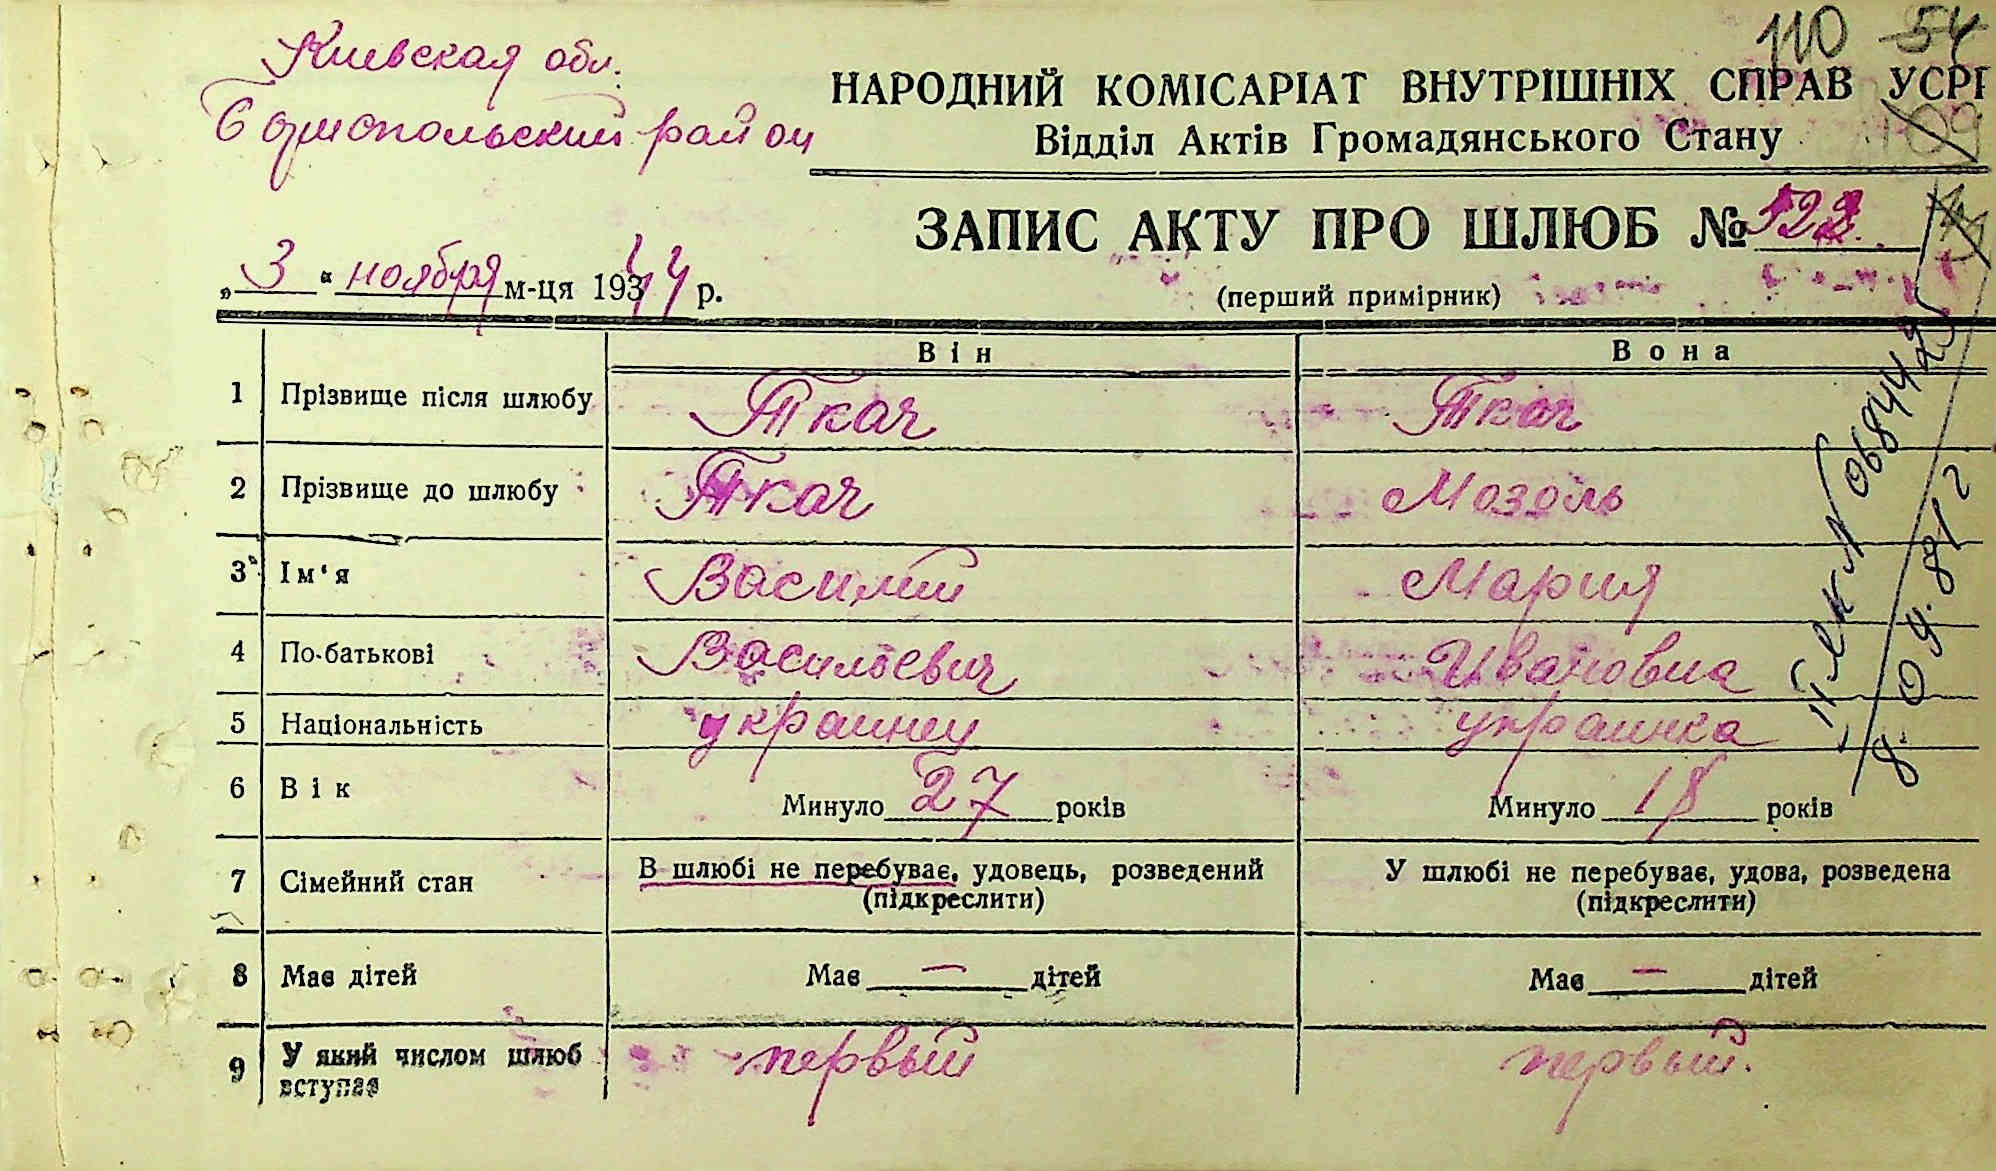 110 54
Киевская обл.
Бориспольский район
НАРОДНИЙ КОМІСАРІАТ ВНУТРІШНІХ СПРАВ УСРР
Відділ Актів Громадянського Стану
109
ЗАПИС АКТУ ПРО ШЛЮБ №
„3“ ноября м-ця 1944 р.
(перший примірник)
Він Вона
1 Прізвище після шлюбу Ткач Ткач
2 Прізвище до шлюбу Ткач Мозоль
3 Ім‘я Василий Мария
4 По-батькові Васильевич Ивановна
5 Національність украинец украинка
6 Вік Минуло 27 років Минуло 18 років
7 Сімейний стан В шлюбі не перебуває, удовець, розведений У шлюбі не перебуває, удова, розведена
(підкреслити) (підкреслити)
8 Має дітей Має — дітей Має — дітей
9 У який числом шлюб вступає первый первый.